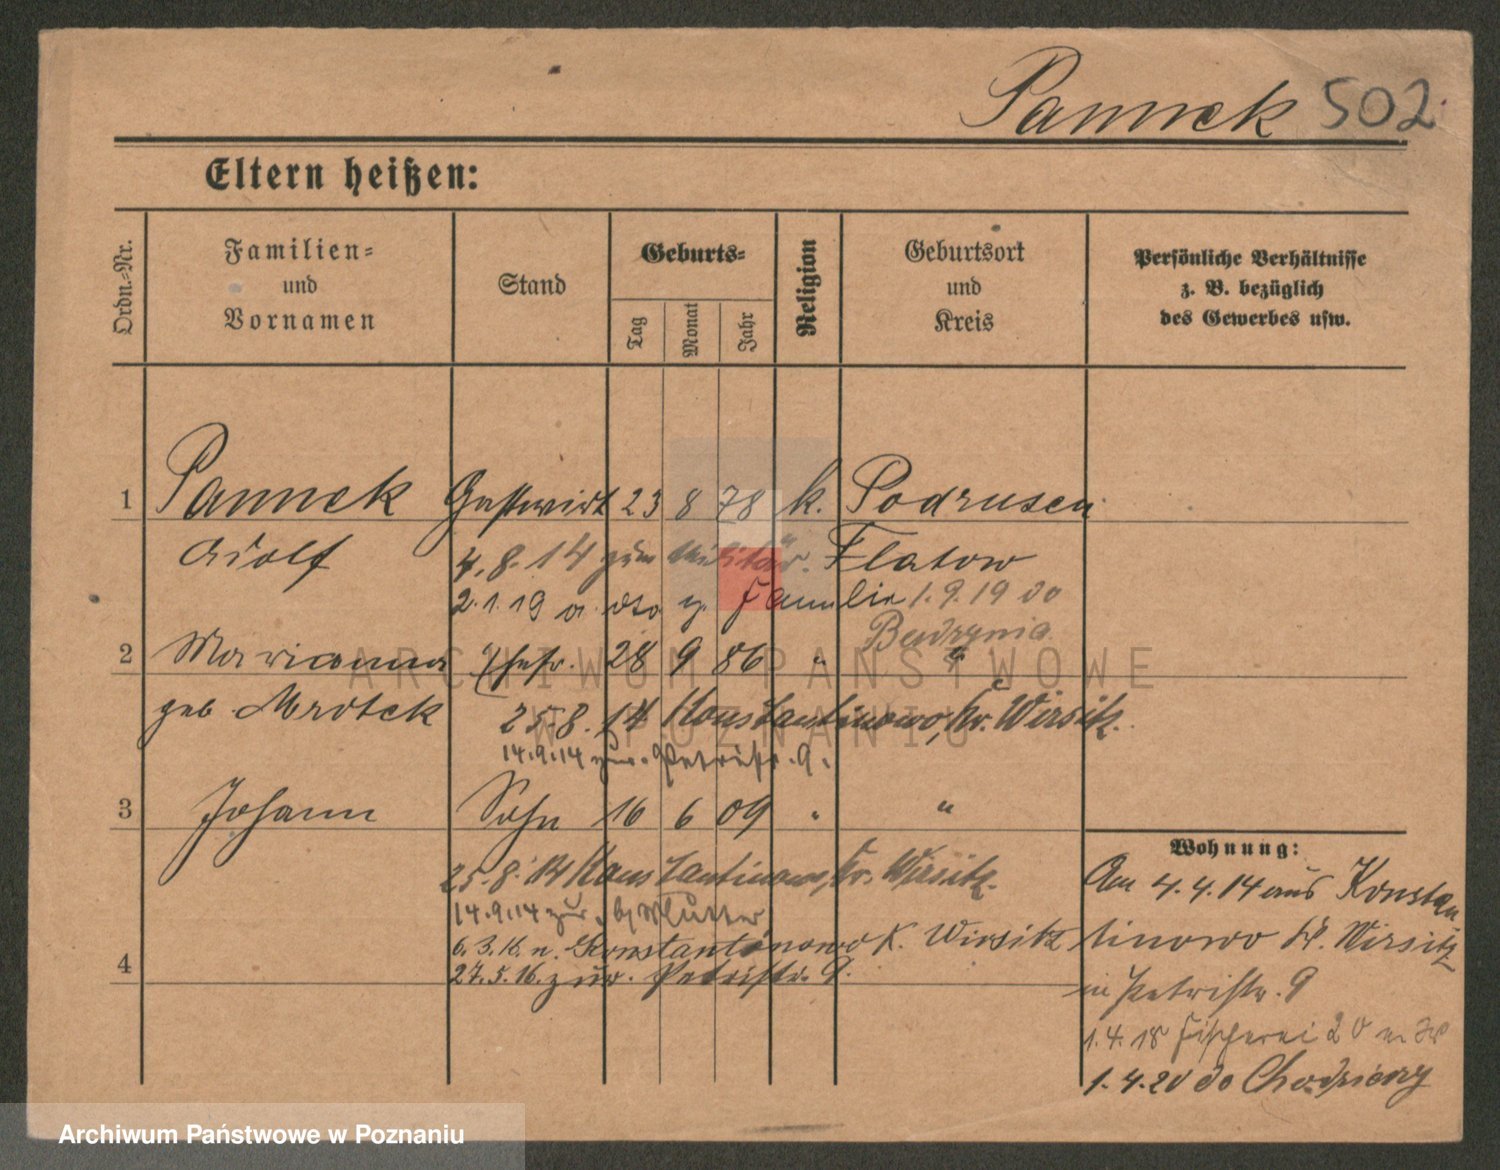 Pannek 502
Eltern heißen:
Ordn.-Nr.
Familien-
und
Vornamen
Stand
Geburts-
Tag
Monat
Jahr
Religion
Geburtsort
und
Kreis
Persönliche Verhältnisse
z. B. bezüglich
des Gewerbes usw.
1 Pannek Gastwirt 23 8 78 k. Podrusen
Adolf 4.8.14 zum Militär. Flatow
2.1.19 a. dto z. Familie 1.9.19 do
2 Marianna Ehefr. 28 9 86 " "
geb. Mrotek 25.8.14 Konstantinowo, Kr. Wirsitz.
14.9.14 zur. Petristr. 9.
3 Johann Sohn 16 6 09 " "
25.8.14 Konstantinowo, Kr. Wirsitz.
14.9.14 zur. b/ Mutter
6.3.16. n. Konstantinowo K. Wirsitz
4 27.5.16. zur. Petristr. 9.
Wohnung:
Am 4.4.14 aus Konstan
tinowo Kr. Wirsitz
in Petristr. 9
1.4.18 Fischerei 20
1.4.20 do
ARCHIWUM PAŃSTWOWE
W POZNANIU
Archiwum Państwowe w Poznaniu